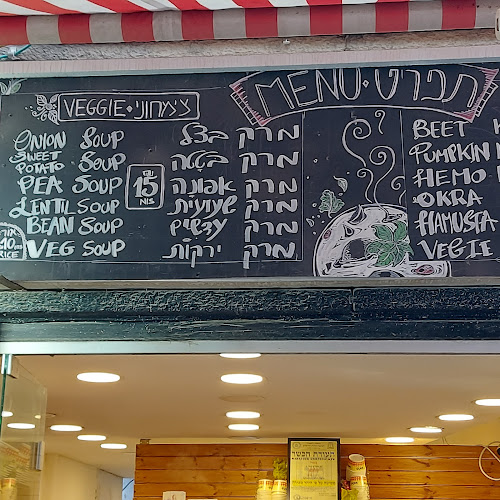 VEGGIE • צימחוני
MENU • תפריט
ONION SOUP מרק בצל
SWEET POTATO SOUP מרק בטטה
PEA SOUP מרק אפונה
LENTIL SOUP מרק שעועית
BEAN SOUP מרק עדשים
VEG SOUP מרק ירקות
15
NIS
10
RICE
BEET
PUMPKIN
HEMO
OKRA
HAMUSTA
VEGIE
תעודת הכשר